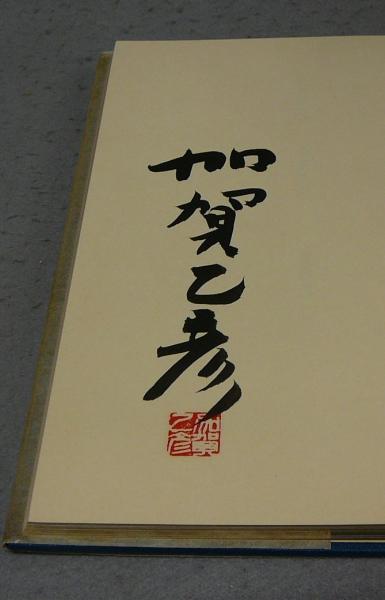 加賀乙彦
加賀
乙彦